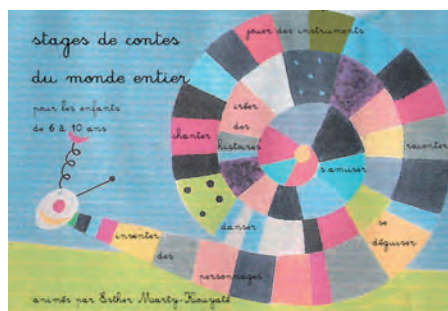 stages de contes
du monde entier
pour les enfants
de 6 à 10 ans
jouer des instruments
créer
des
histoires
chanter
raconter
s'amuser
danser
se
déguiser
inventer
des
personnages
animés par Esther Marty-Kouyaté